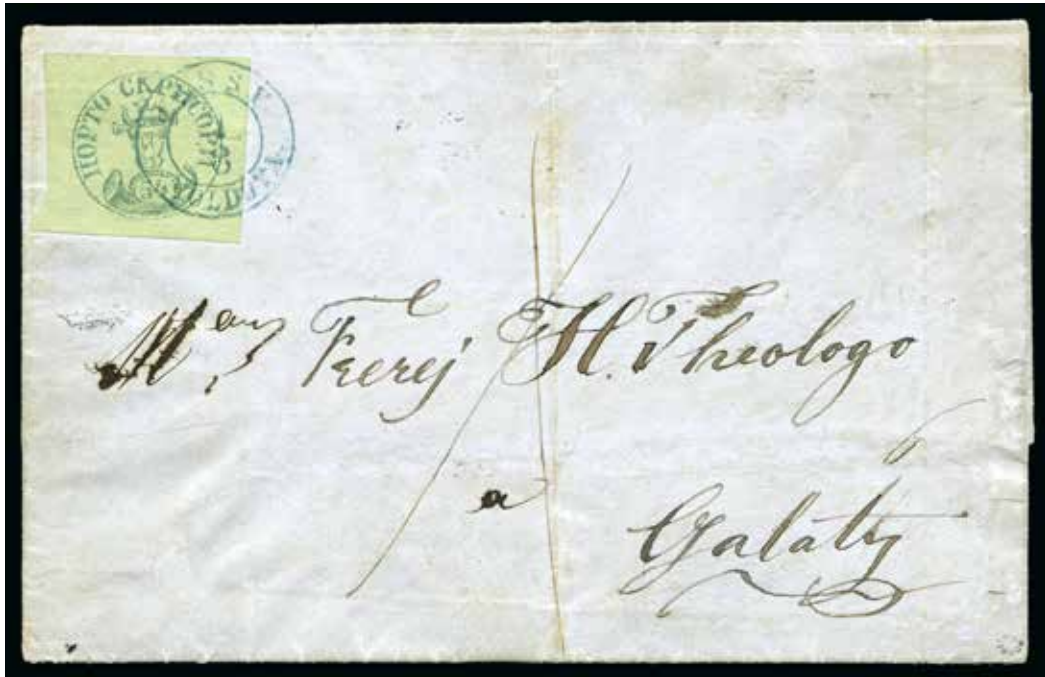 ПОРТО СКРИСОРИ
MOLDOVA
Frerej H. Theologo
a
Galatz